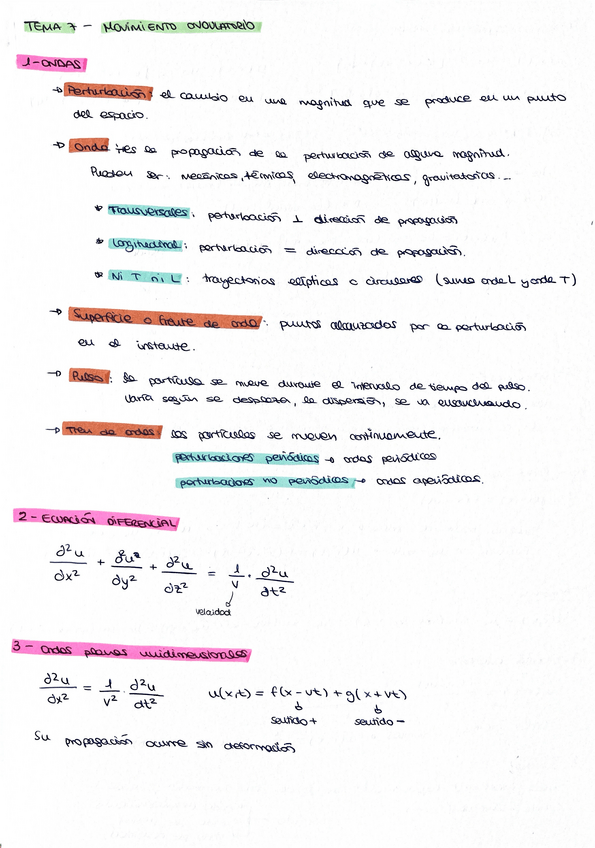 TEMA 7 - MOVIMIENTO ONDULATORIO
1-ONDAS
→ Perturbación: el cambio en una magnitud que se produce en un punto
del espacio.
→ Onda: es la propagación de la perturbación de alguna magnitud.
Pueden ser: mecánicas, térmicas, electromagnéticas, gravitatorias...
Transversales: perturbación ⊥ dirección de propagación
Longitudinal: perturbación = dirección de propagación.
Ni T ni L: trayectorias elípticas o circulares (suma onda L y onda T)
→ Superficie o frente de onda: puntos alcanzados por la perturbación
en el instante.
→ Pulso: la partícula se mueve durante el intervalo de tiempo del pulso.
Varía según se desplaza, la dispersión, se va ensanchando.
→ Tren de ondas: las partículas se mueven continuamente.
perturbaciones periódicas → ondas periódicas
perturbaciones no periódicas → ondas aperiódicas.
2 - ECUACIÓN DIFERENCIAL
∂²u/∂x² + ∂²u²/∂y² + ∂²u/∂z² = 1/v · ∂²u/∂t²
velocidad
3 - Ondas planas unidimensionales
∂²u/∂x² = 1/v² · ∂²u/∂t² u(x,t) = f(x-vt) + g(x+vt)
sentido + sentido -
Su propagación ocurre sin deformación